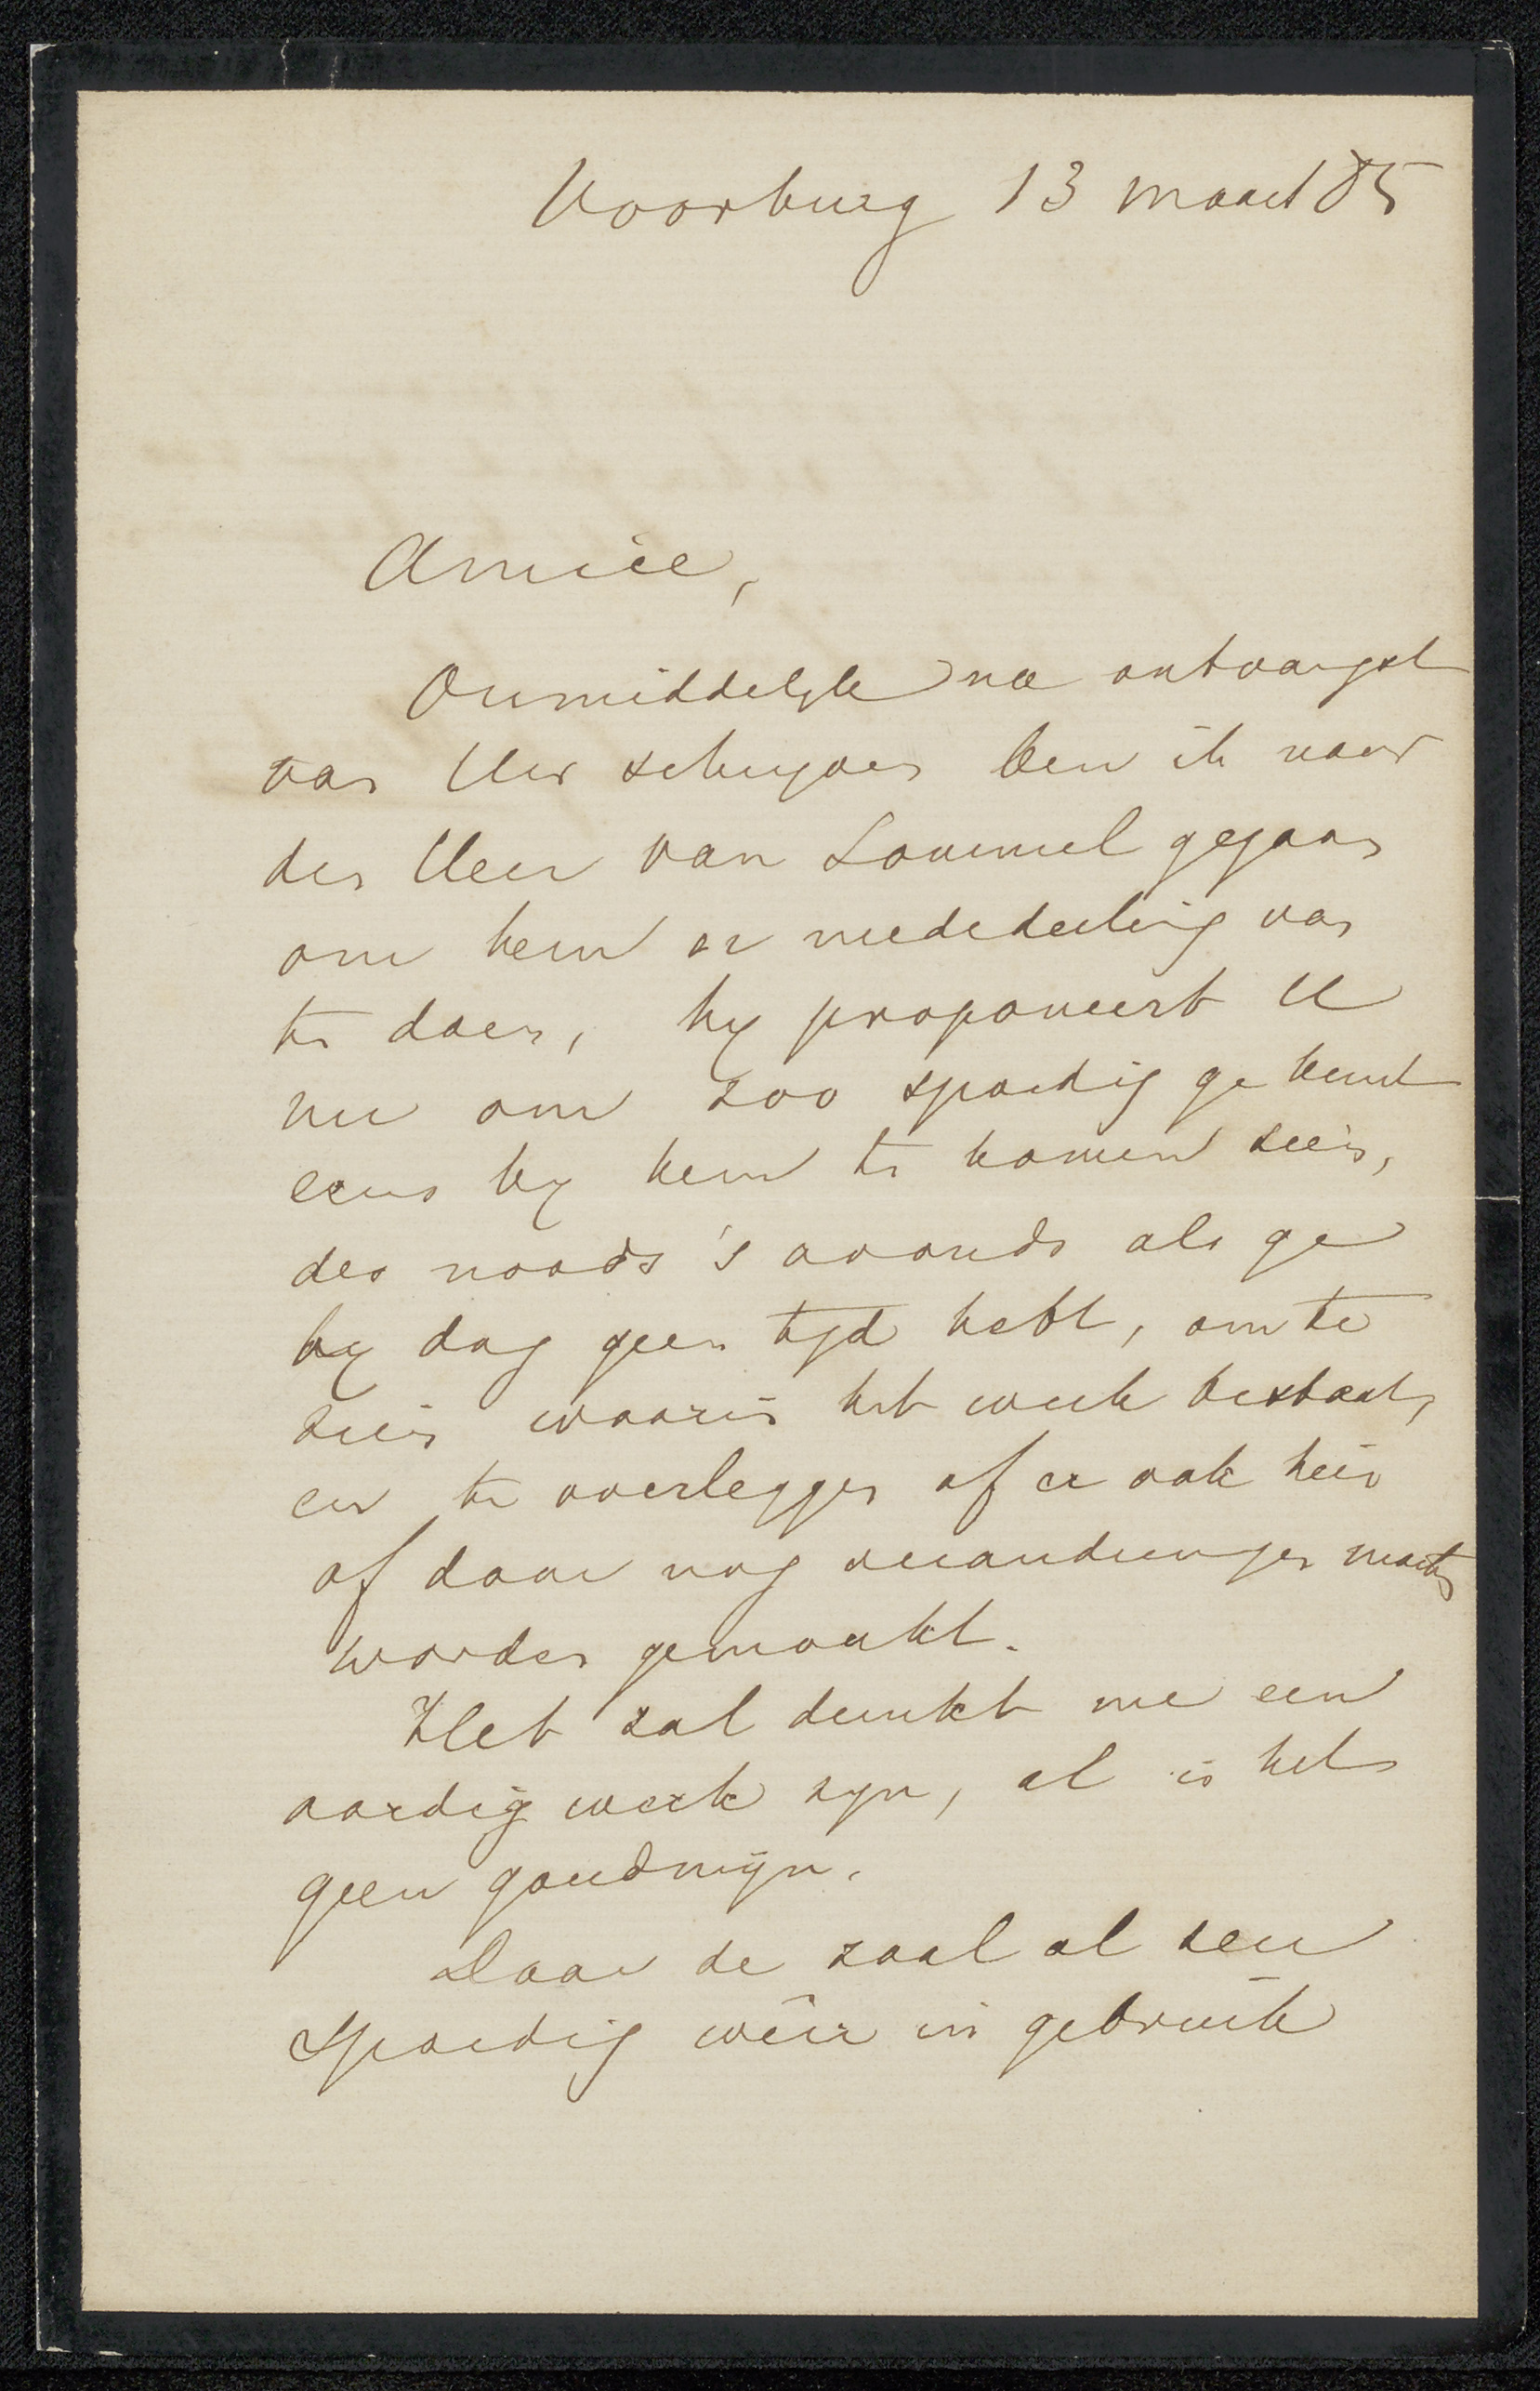 Voorburg 13 maart 85
Amice,
Onmiddelyk na ontvangst
van Uw schryven ben ik naar
den Heer van Lommel gegaan
om hem er mededeeling van
te doen, hy proponeert U
nu om zoo spoedig ge kunt
eens by hem te komen zien,
des noods 's avonds als ge
by dag geen tyd hebt, om te
zien waarin het werk bestaat,
en te overlegger of er ook hier
of daar nog veranderingen moeten
worden gemaakt.
Het zal dunkt me een
aardig werk zyn, al is het
geen goudmijn.
Daar de zaal al zeer
spoedig wêer in gebruik